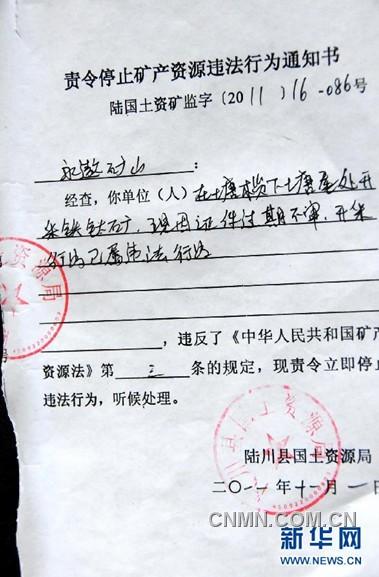 责令停止矿产资源违法行为通知书
陆国土资矿监字 〔2011〕16-086号
永敏矿山：
经查，你单位（人）在土塘下土塘屋处开
采铁钛矿，现用证件过期不审，开采
行为已属违法行为
，违反了《中华人民共和国矿产
资源法》第 三 条的规定，现责令立即停止
违法行为，听候处理。
资源局
陆川县国土资源局
陆川县国土资源局
二〇一一年十一月一日
CNMN.COM.CN
新华网
WWW.NEWS.CN